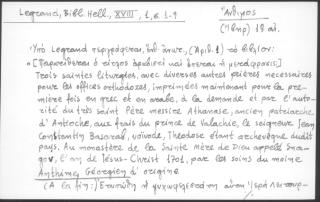 Legrand, Bibl. Hell., XVIII 1, σ. 1-9
Ἄνθιμος
18 αἰ.
Ὑπὸ Legrand περιγράφεται, (Ἀριθ. 1) τὸ βιβλίον:
Trois saintes liturgies, avec diverses autres prières nécessaires
pour les offices orthodoxes, imprimées maintenant pour la pre-
mière fois en grec et en arabe, à la demande et par l'auto-
rité du très saint Père messire Athanase, ancien patriarche
d'Antioche, aux frais du prince de Valachie, le seigneur Jean
Constantin Basarab, voïvode, Théodose étant archevêque dudit
pays. Au monastère de la Sainte Mère de Dieu appelé Sna-
gov, l'an de Jésus-Christ 1701, par les soins du moine
Anthime, Géorgien d'origine
(A la fin:)